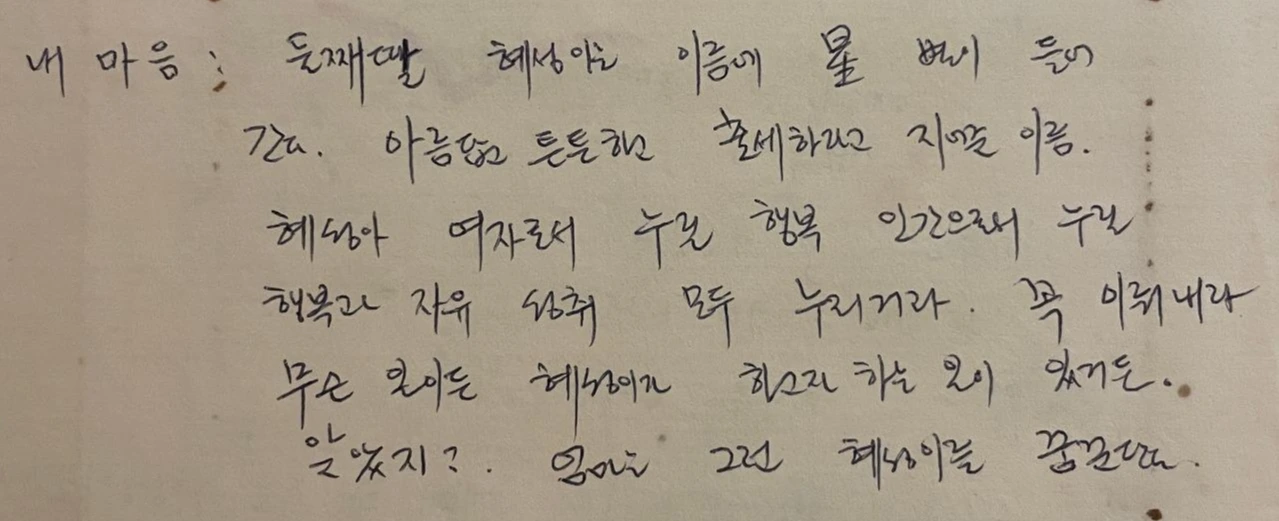 내 마음 : 둘째딸 혜성이는 이름에 星 별이 들어
간다. 아름답고 튼튼하고 출세하라고 지어준 이름.
혜성아 여자로서 누릴 행복 인간으로서 누릴
행복과 자유 성취 모두 누리거라. 꼭 이뤄내라
무슨 일이든 혜성이가 하고자 하는 일이 있거든.
알았지?. 엄마는 그런 혜성이를 꿈꾼단다.